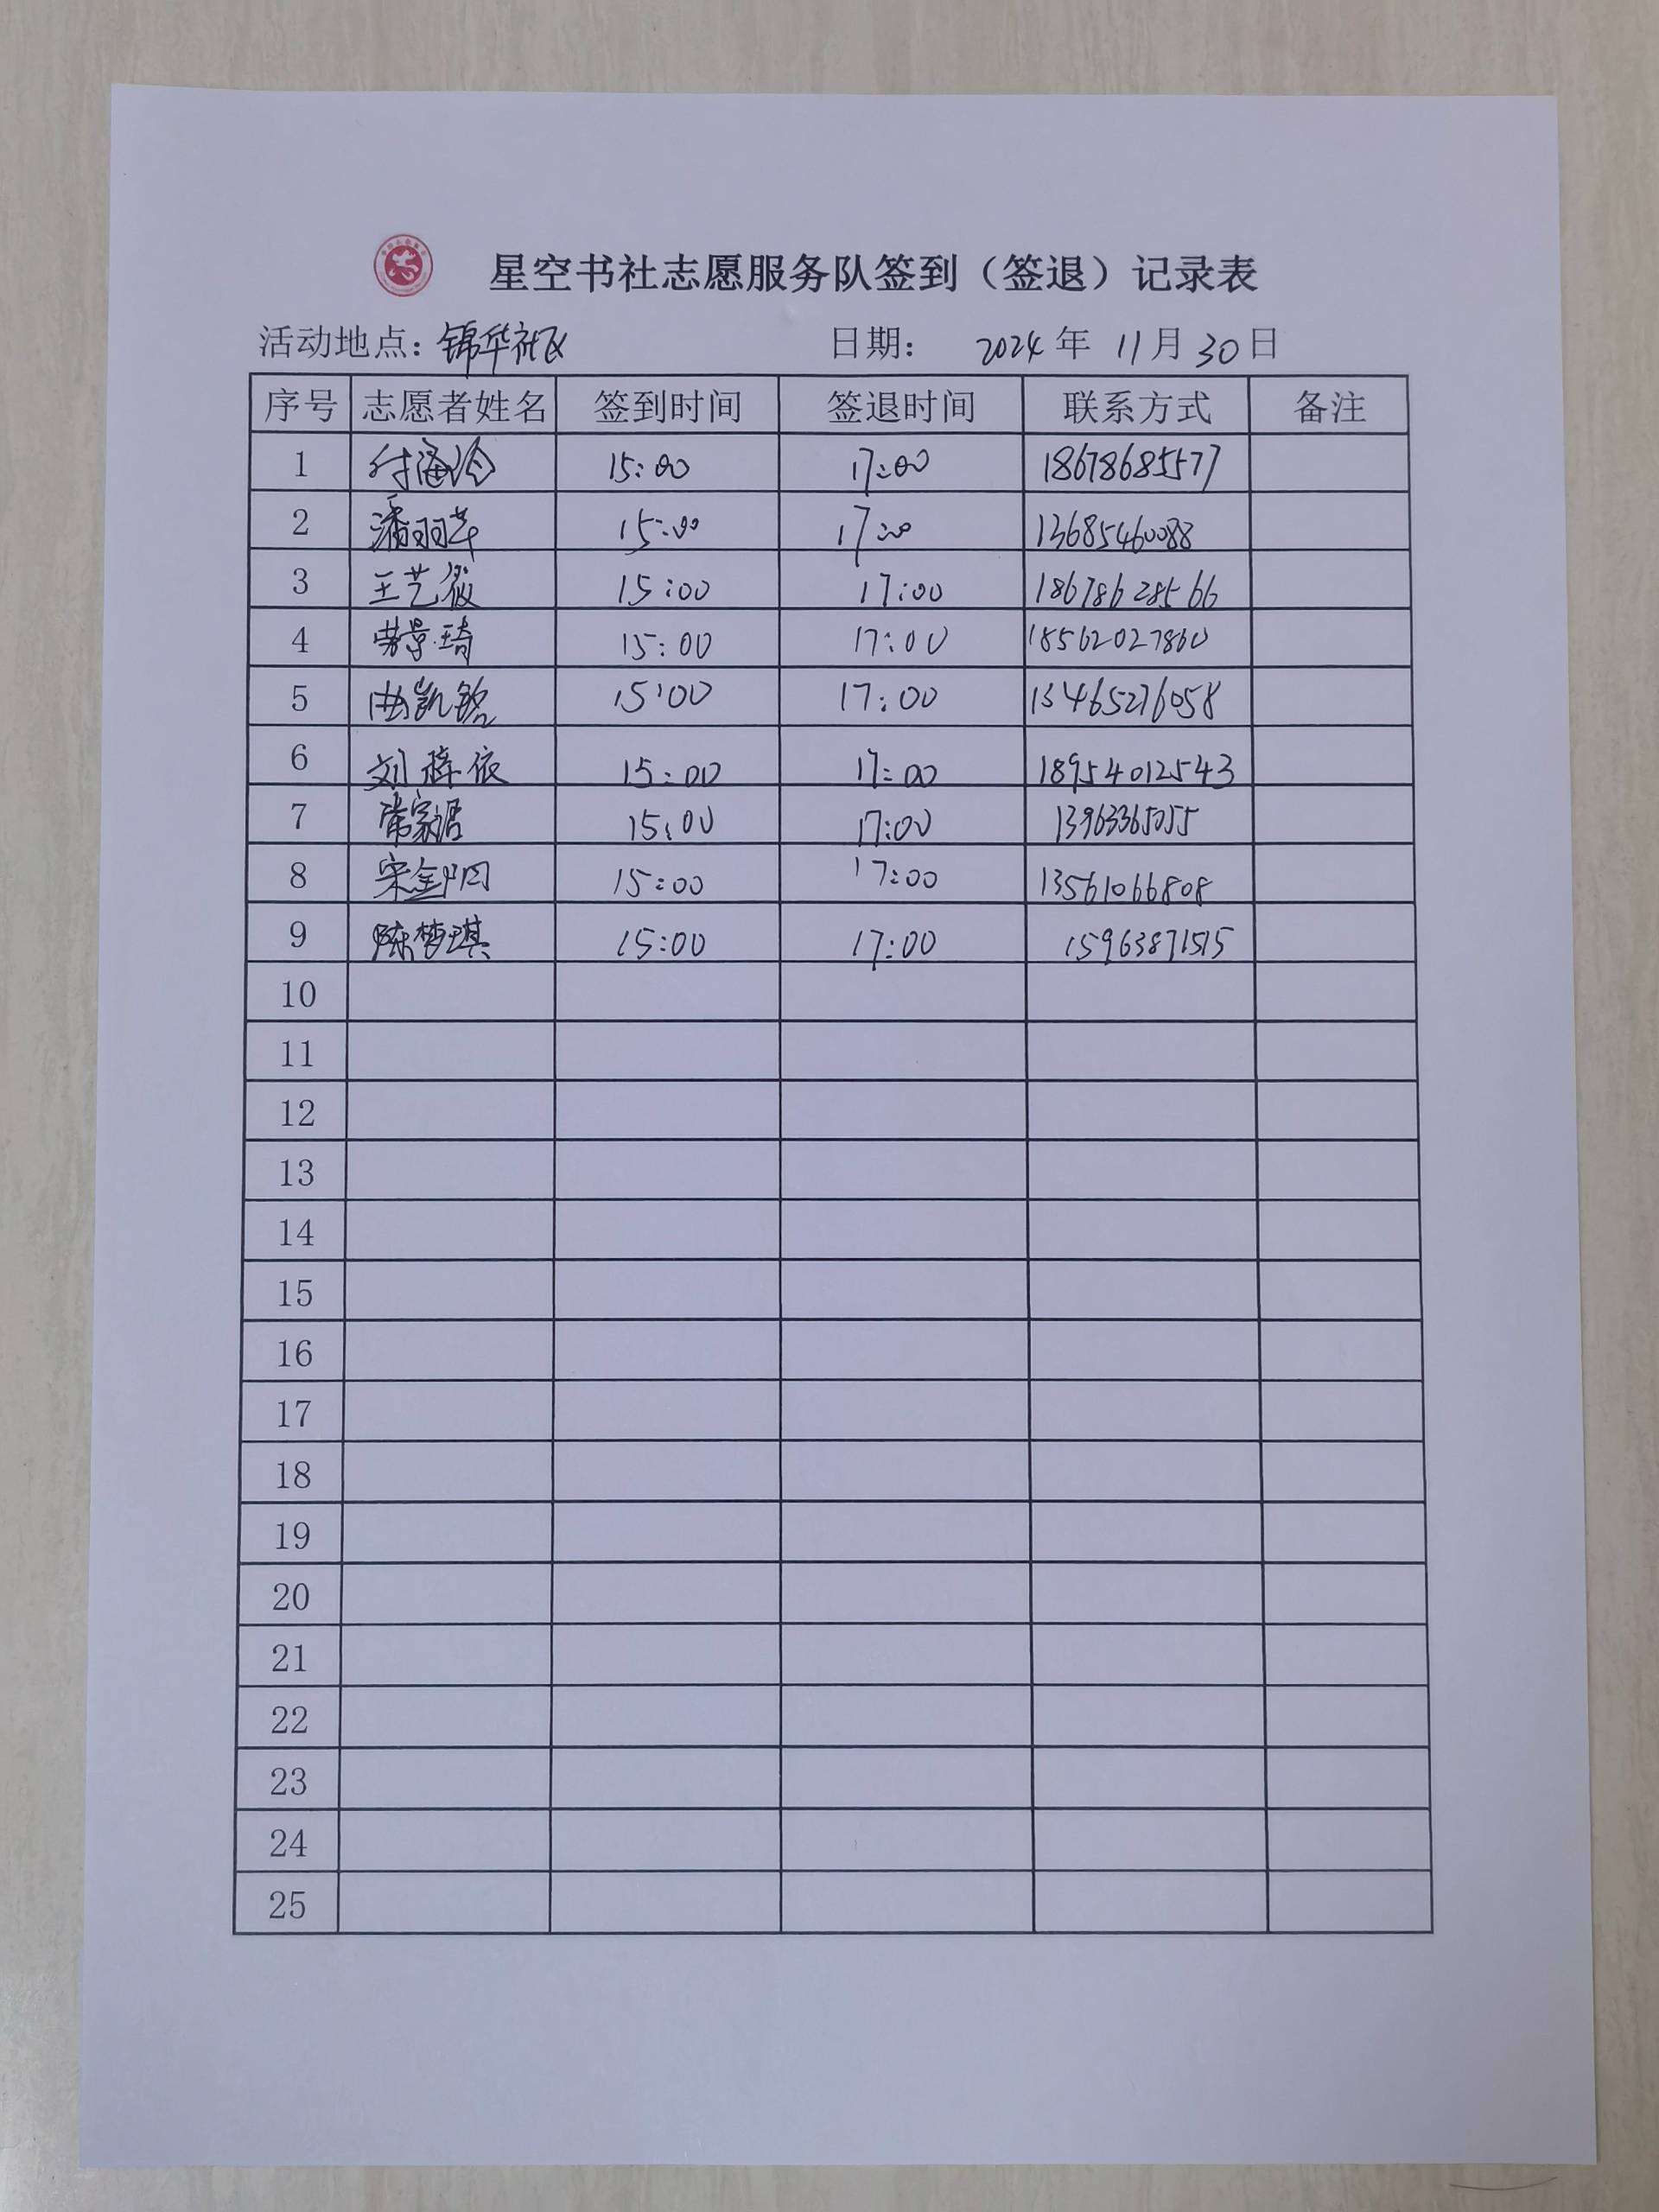 星空书社志愿服务队签到（签退）记录表
活动地点：锦华社区 日期： 2024 年 11 月 30 日
序号 志愿者姓名 签到时间 签退时间 联系方式 备注
1 付海 15:00 17:00 18678685577
2 潘羽 15:00 17:00 13685460088
3 王艺 15:00 17:00 18678628566
4 景琦 15:00 17:00 18562027860
5 曲凯铭 15:00 17:00 13465276058
6 刘梓依 15:00 17:00 18954012543
7 常家 15:00 17:00 13963365055
8 宋金阳 15:00 17:00 13561066808
9 陈梦琪 15:00 17:00 15963871515
10
11
12
13
14
15
16
17
18
19
20
21
22
23
24
25